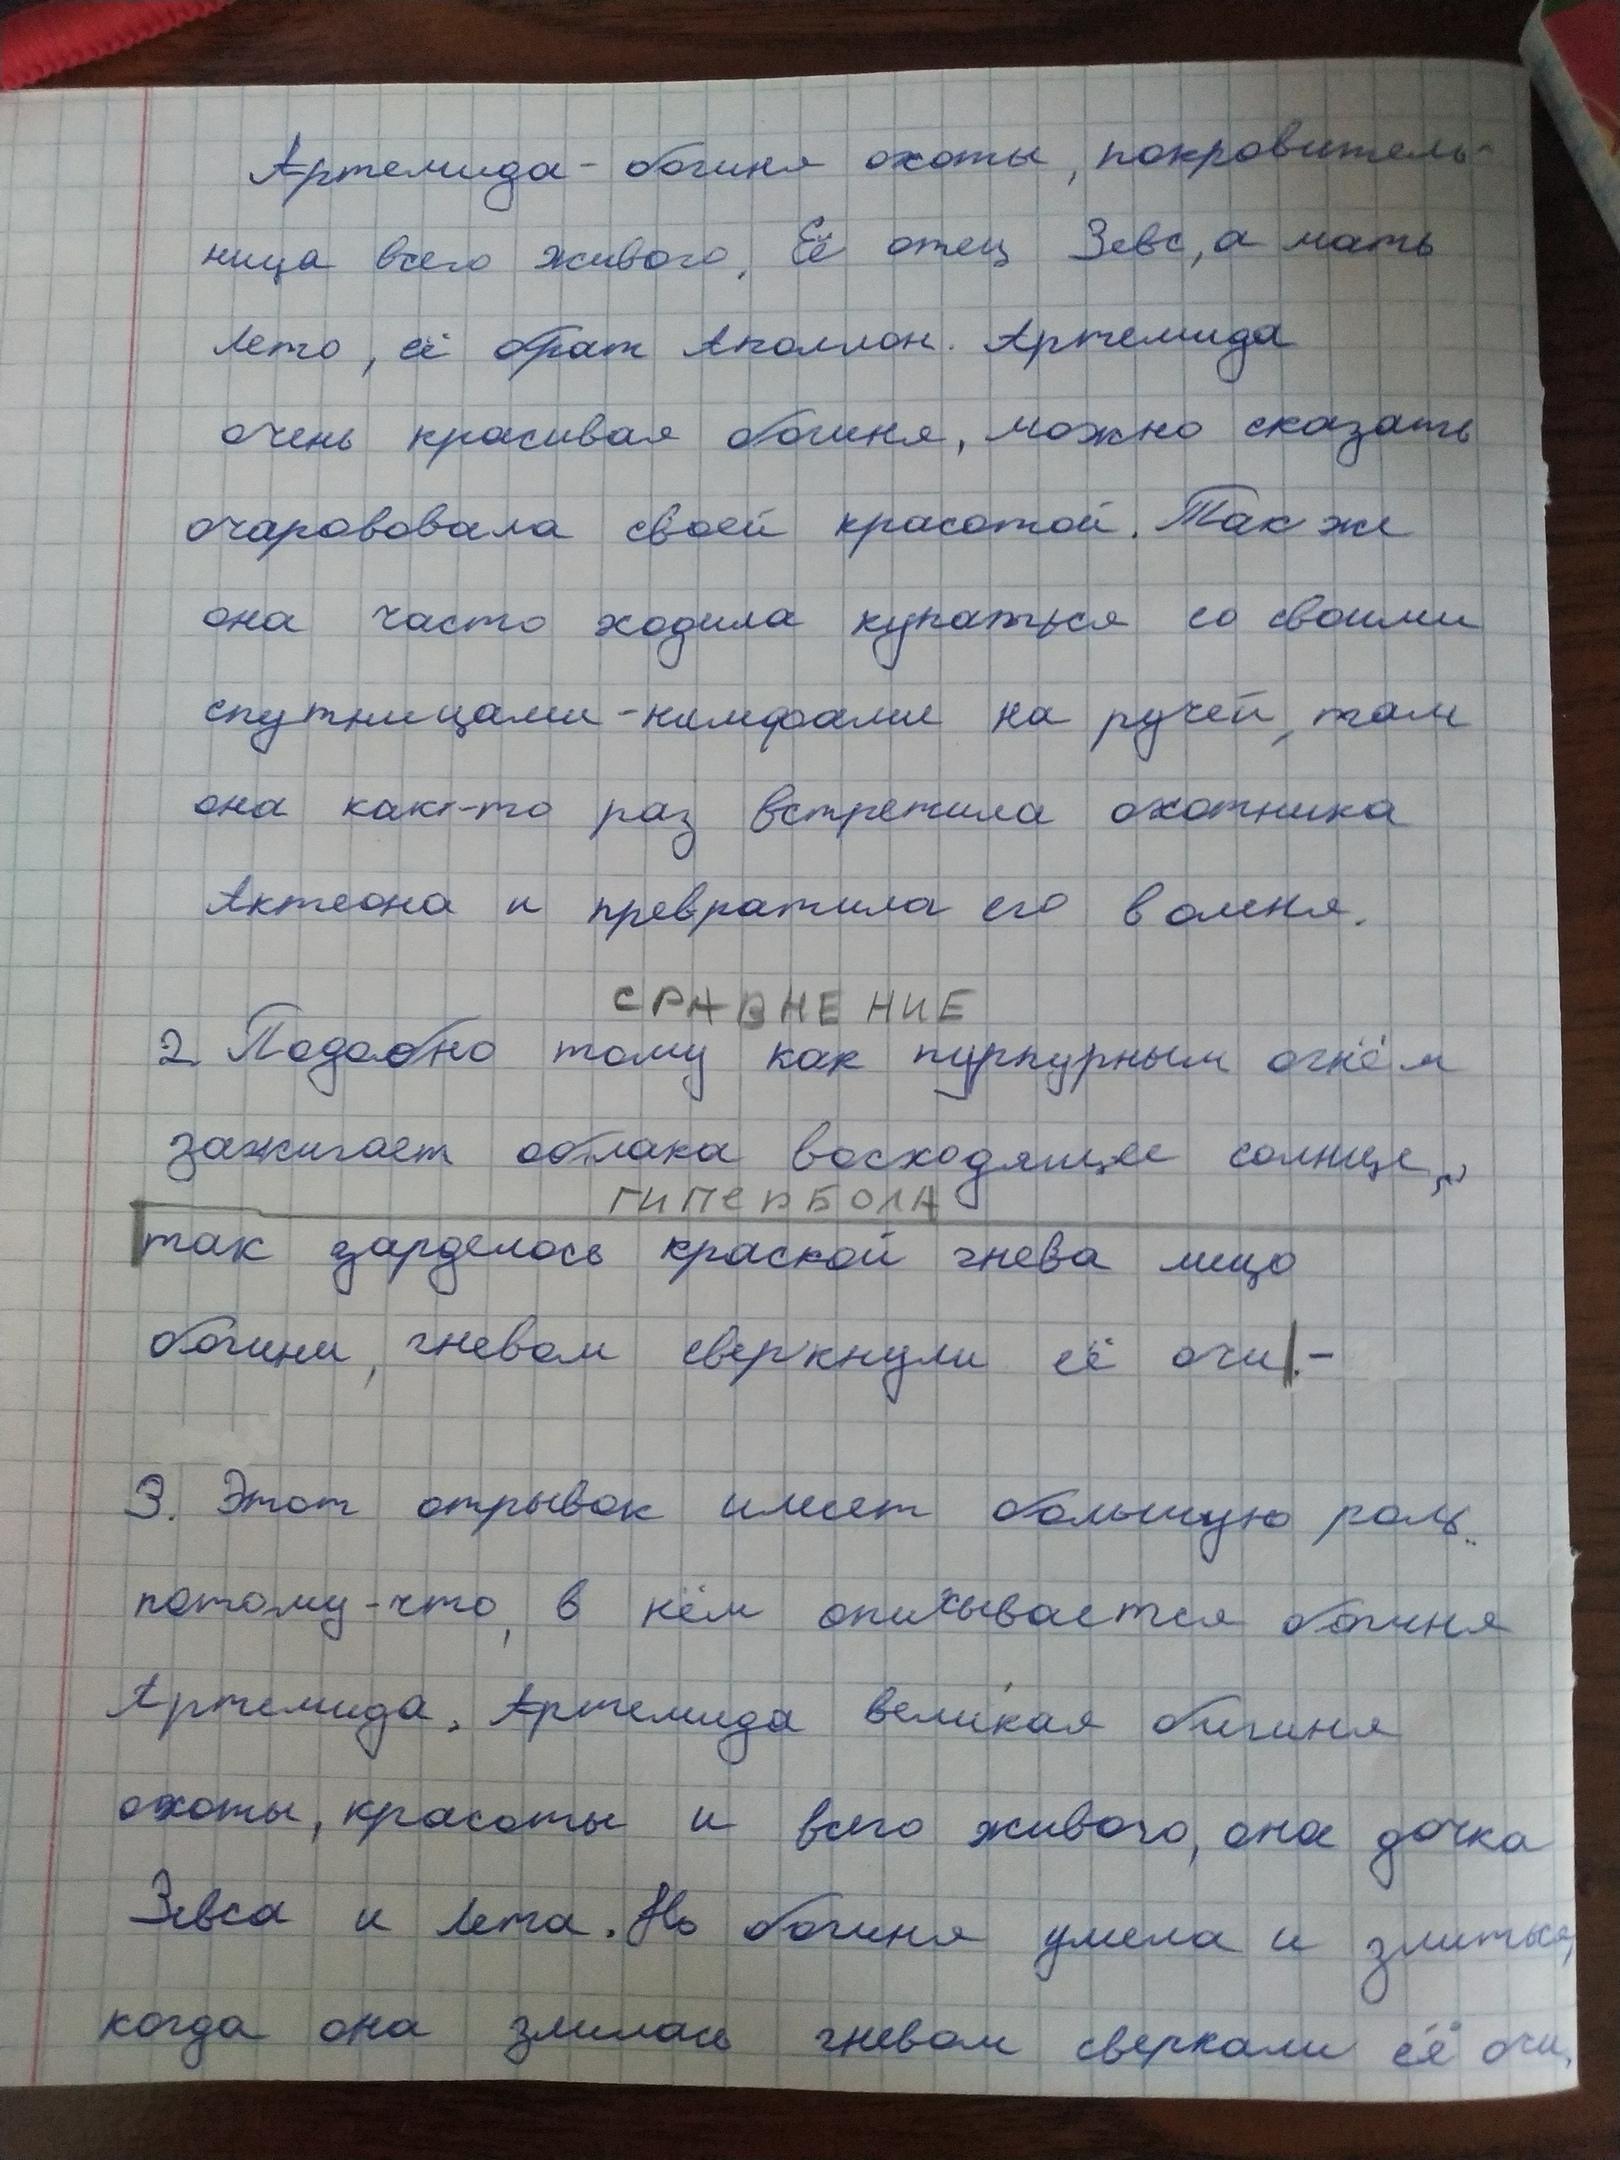 Артемида - богиня охоты, покровитель-
ница всего живого. Её отец Зевс, а мать
Лето, её брат Аполлон. Артемида
очень красивая богиня, можно сказать
очарововала своей красотой. Так же
она часто ходила купаться со своими
спутницами-нимфами на ручей, там
она как-то раз встретила охотника
Актеона и превратила его в оленя.
СРАВНЕНИЕ
2. Подобно тому как пурпурным огнём
зажигает облака восходящее солнце,
ГИПЕРБОЛА
так зарделось краской гнева лицо
богини, гневом сверкнули её очи. -
3. Этот отрывок имеет большую роль.
потому-что, в нём описывается богиня
Артемида. Артемида великая бигиня
охоты, красоты и всего живого, она дочка
Зевса и Лета. Но богиня умела и злиться,
когда она злилась гневом сверкали её очи.